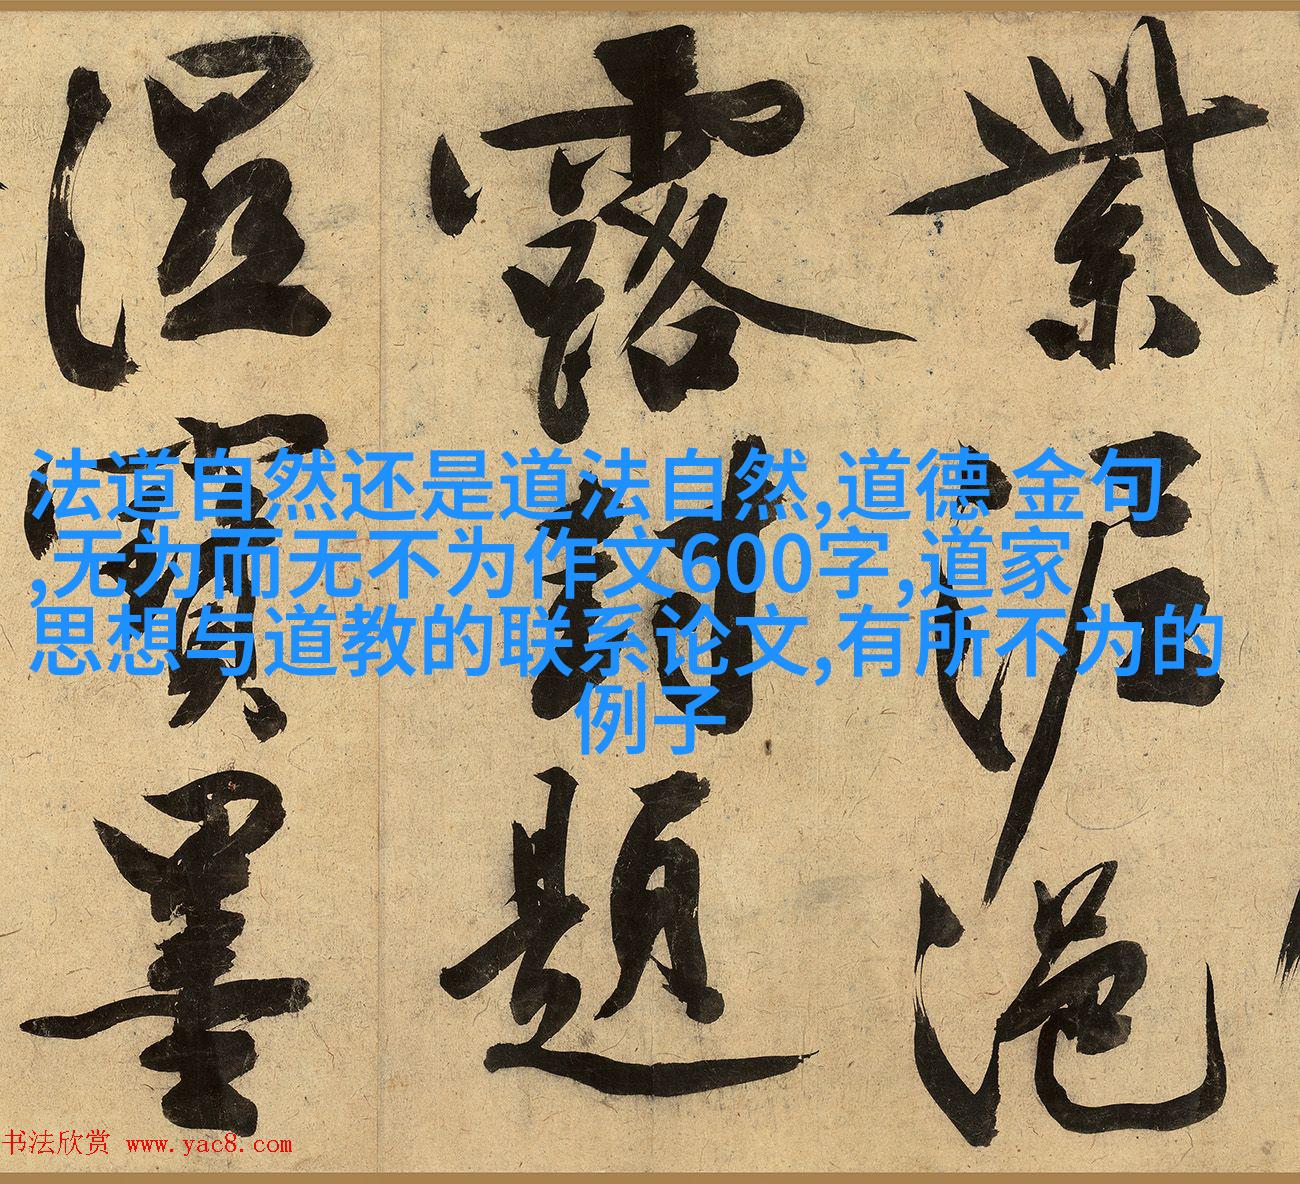 紫泥浥
露封題
濕寶墨
法道自然还是道法自然,道德 金句
,无为而无不为作文600字,道家
思想与道教的联系论文,有所不为的
例子
书法欣赏 www.yac8.com